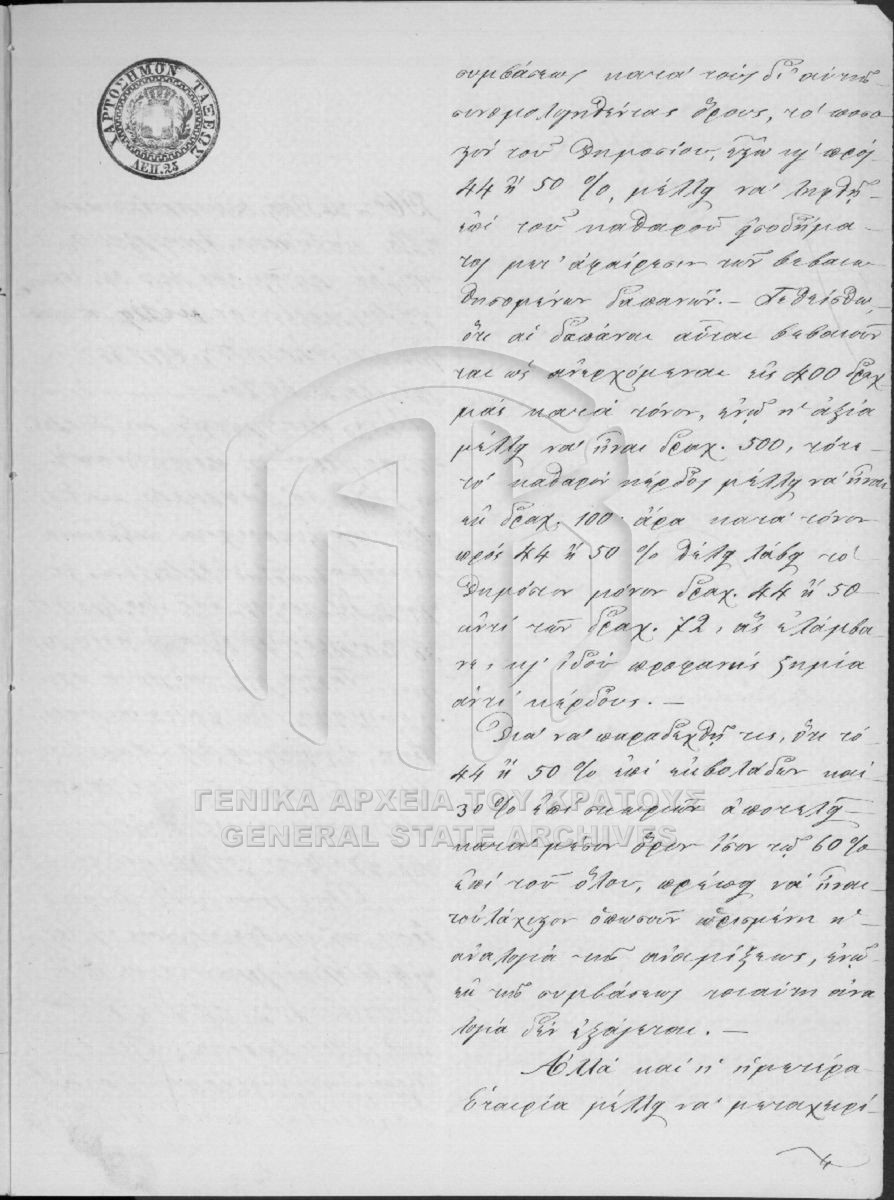 ΧΑΡΤΟΣΗΜΟΝ ΤΑΞΕΩΣ
ΛΕΠ. 25
συμβάσεως κατὰ τοὺς δι' αὐτῆς
συνομολογηθέντας ὅρους, τὸ ποσο
στὸν τοῦ Δημοσίου, ἔξω πρὸς
44 ἢ 50 %, μέλλῃ νὰ ληφθῇ
ἐπὶ τοῦ καθαροῦ εἰσοδήμα-
τος μετ' ἀφαίρεσιν τῶν βεβαιω
θησομένων δαπανῶν. — Τεθείσθω,
ὅτι αἱ δαπάναι αὗται βεβαιοῦν
ται ὡς ἀνερχόμεναι εἰς 400 δραχ
μὰς κατὰ τόνον, ἐνῷ ἡ ἀξία
μέλλῃ νὰ ἦναι δραχ. 500, τότε
τὸ καθαρὸν κέρδος μέλλῃ νὰ ἦναι
ἐκ δραχ. 100· ἄρα κατὰ τόνον
πρὸς 44 ἢ 50 % θέλῃ λάβῃ τὸ
Δημόσιον μόνον δραχ. 44 ἢ 50
ἀντὶ τῶν δραχ. 72, ἃς ἐλάμβα
νε, κ' ἰδοὺ προφανὴς ζημία
ἀντὶ κέρδους. —
Διὰ νὰ παραδεχθῇ τις, ὅτι τὸ
44 ἢ 50 % ἐπὶ ἐκβολάδων καὶ
30 % ἐπὶ σκωριῶν ἀποτελῇ
κατὰ μέσον ὅρον ἴσον τῷ 60 %
ἐπὶ τοῦ ὅλου, πρέπῃ νὰ ἦναι
τοὐλάχιστον ὁπωσοῦν ὡρισμένη ἡ
ἀναλογία τῆς ἀναμίξεως, ἐνῷ
ἐκ τῆς συμβάσεως τοιαύτη ἀνα
λογία δὲν ἐξάγεται. —
Ἀλλὰ καὶ ἡ ἡμετέρα
Ἑταιρία μέλλῃ νὰ μεταχειρι-
ΓΕΝΙΚΑ ΑΡΧΕΙΑ ΤΟΥ ΚΡΑΤΟΥΣ
GENERAL STATE ARCHIVES